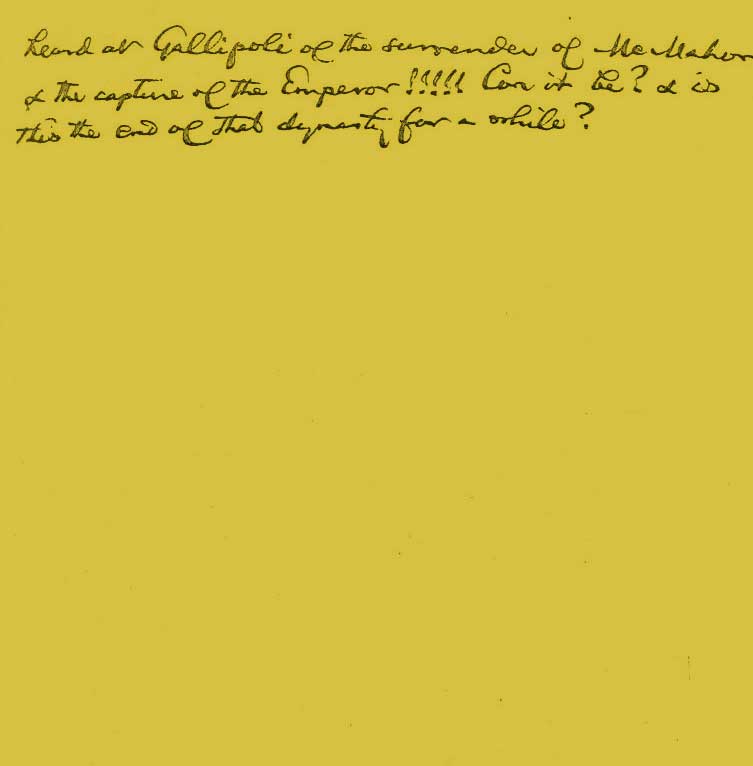 heard at Gallipoli of the surrender of McMahon
& the capture of the Emperor!!!!! Can it be? & is
this the end of that dynasty for a while?